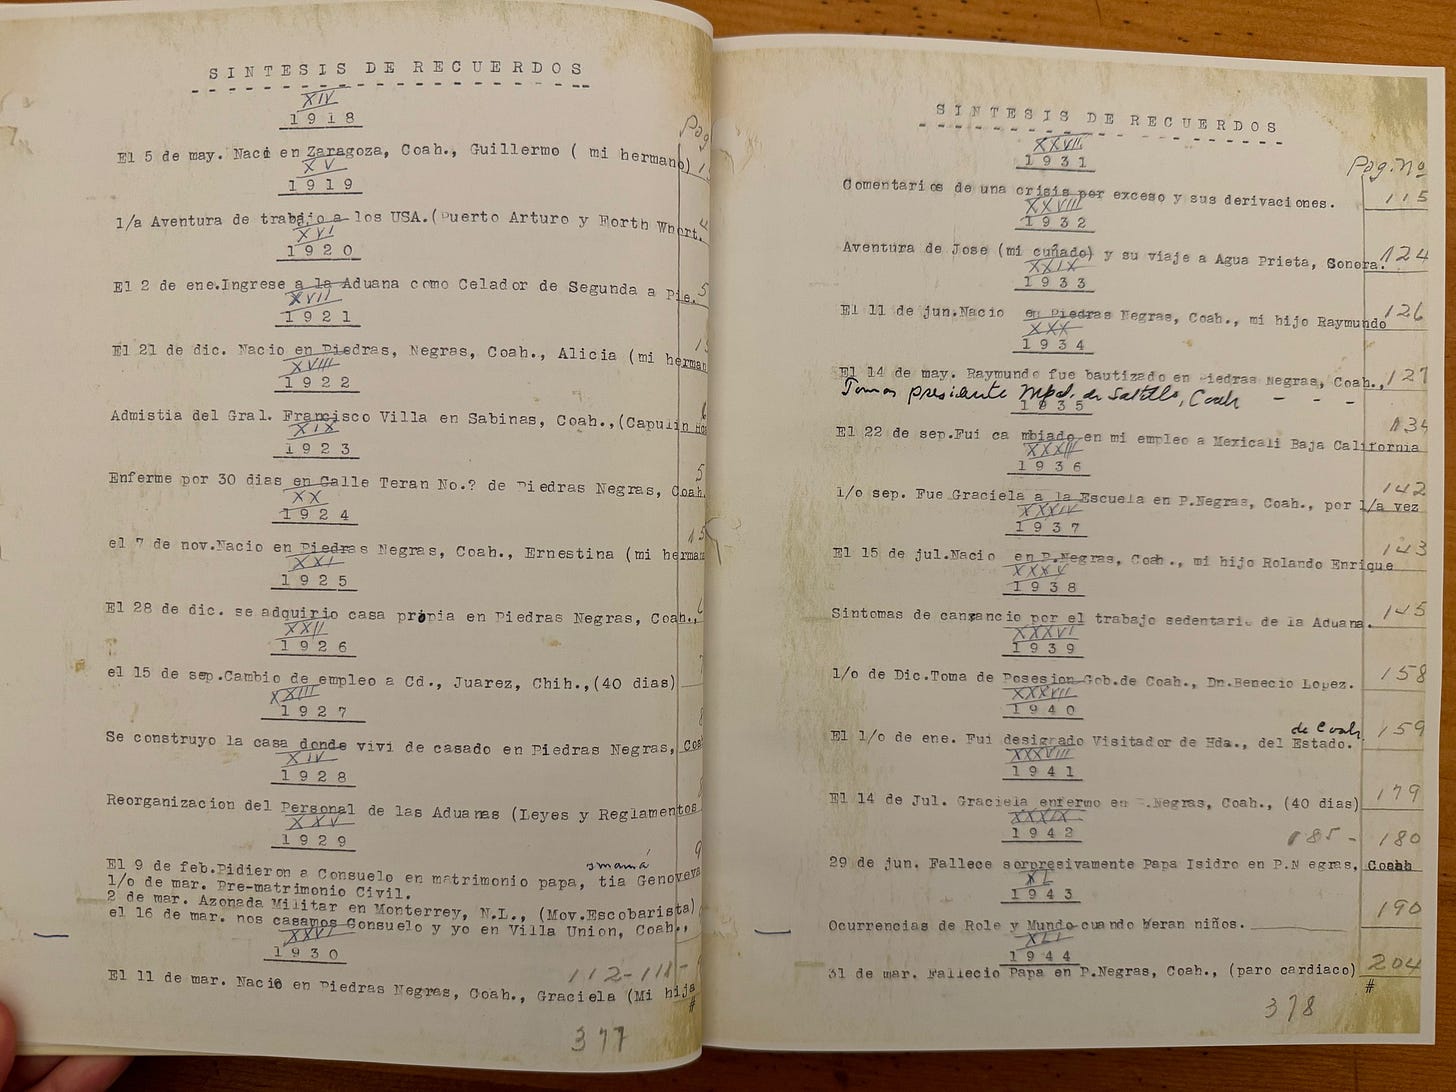 SINTESIS DE RECUERDOS
XIV
Pag
1918
El 5 de may. Nació en Zaragoza, Coah., Guillermo ( mi hermano)
XV
1919
1/a Aventura de trabajo a los USA.(Puerto Arturo y Forth Whort.
XVI
1920
El 2 de ene.Ingrese a la Aduana como Celador de Segunda a Pie.
XVII
1921
El 21 de dic. Nacio en Piedras, Negras, Coah., Alicia (mi herman
XVIII
1922
Admistia del Gral. Francisco Villa en Sabinas, Coah.,(Capulin
XIX
1923
Enferme por 30 dias en Calle Teran No.? de Piedras Negras, Coah.
XX
1924
el 7 de nov.Nacio en Piedras Negras, Coah., Ernestina (mi herman
XXI
1925
El 28 de dic. se adquirio casa propia en Piedras Negras, Coah.,
XXII
1926
el 15 de sep.Cambio de empleo a Cd., Juarez, Chih.,(40 dias)
XXIII
1927
Se construyo la casa donde vivi de casado en Piedras Negras, Coa
XIV
1928
Reorganizacion del Personal de las Aduanas (Leyes y Reglamentos
XXV
1929
smamá
El 9 de feb.Pidieron a Consuelo en matrimonio papa, tia Genoveva
1/o de mar. Pre-matrimonio Civil.
2 de mar. Azonada Militar en Monterrey, N.L., (Mov.Escobarista)
el 16 de mar. nos casamos Consuelo y yo en Villa Union, Coah.,
XXVI
1930
112-111-
El 11 de mar. Nacio en Piedras Negras, Coah., Graciela (Mi hija
#
377
SINTESIS DE RECUERDOS
XXVII
1931
Pag. Nº
Comentarios de una crisis por exceso y sus derivaciones. 115
XXVIII
1932
Aventura de Jose (mi cuñado) y su viaje a Agua Prieta, Sonora. 124
XXIX
1933
El 11 de jun.Nacio en Piedras Negras, Coah., mi hijo Raymundo 126
XXX
1934
El 14 de may. Raymundo fue bautizado en Piedras Negras, Coah., 127
Tomas presidente Mpal. de Saltillo, Coah - - -
1935
El 22 de sep.Fui ca mbiado en mi empleo a Mexicali Baja California 134
XXXIII
1936
1/o sep. Fue Graciela a la Escuela en P.Negras, Coah., por 1/a vez 142
XXXIV
1937
El 15 de jul.Nacio en P.Negras, Coah., mi hijo Rolando Enrique 143
XXXV
1938
Sintomas de cansancio por el trabajo sedentario de la Aduana. 145
XXXVI
1939
1/o de Dic.Toma de Posesion Gob.de Coah., Dn.Benecio Lopez. 158
XXXVII
1940
de Coah
El 1/o de ene. Fui designado Visitador de Hda., del Estado. 159
XXXVIII
1941
El 14 de Jul. Graciela enfermo en P.Negras, Coah., (40 dias) 179
XXXIX
1942
185- 180
29 de jun. Fallece sorpresivamente Papa Isidro en P.N egras, Coahh
XL
1943
Ocurrencias de Role y Mundo cuando eran niños. 190
XLI
1944
31 de mar. Fallecio Papa en P.Negras, Coah., (paro cardiaco) 204
#
378